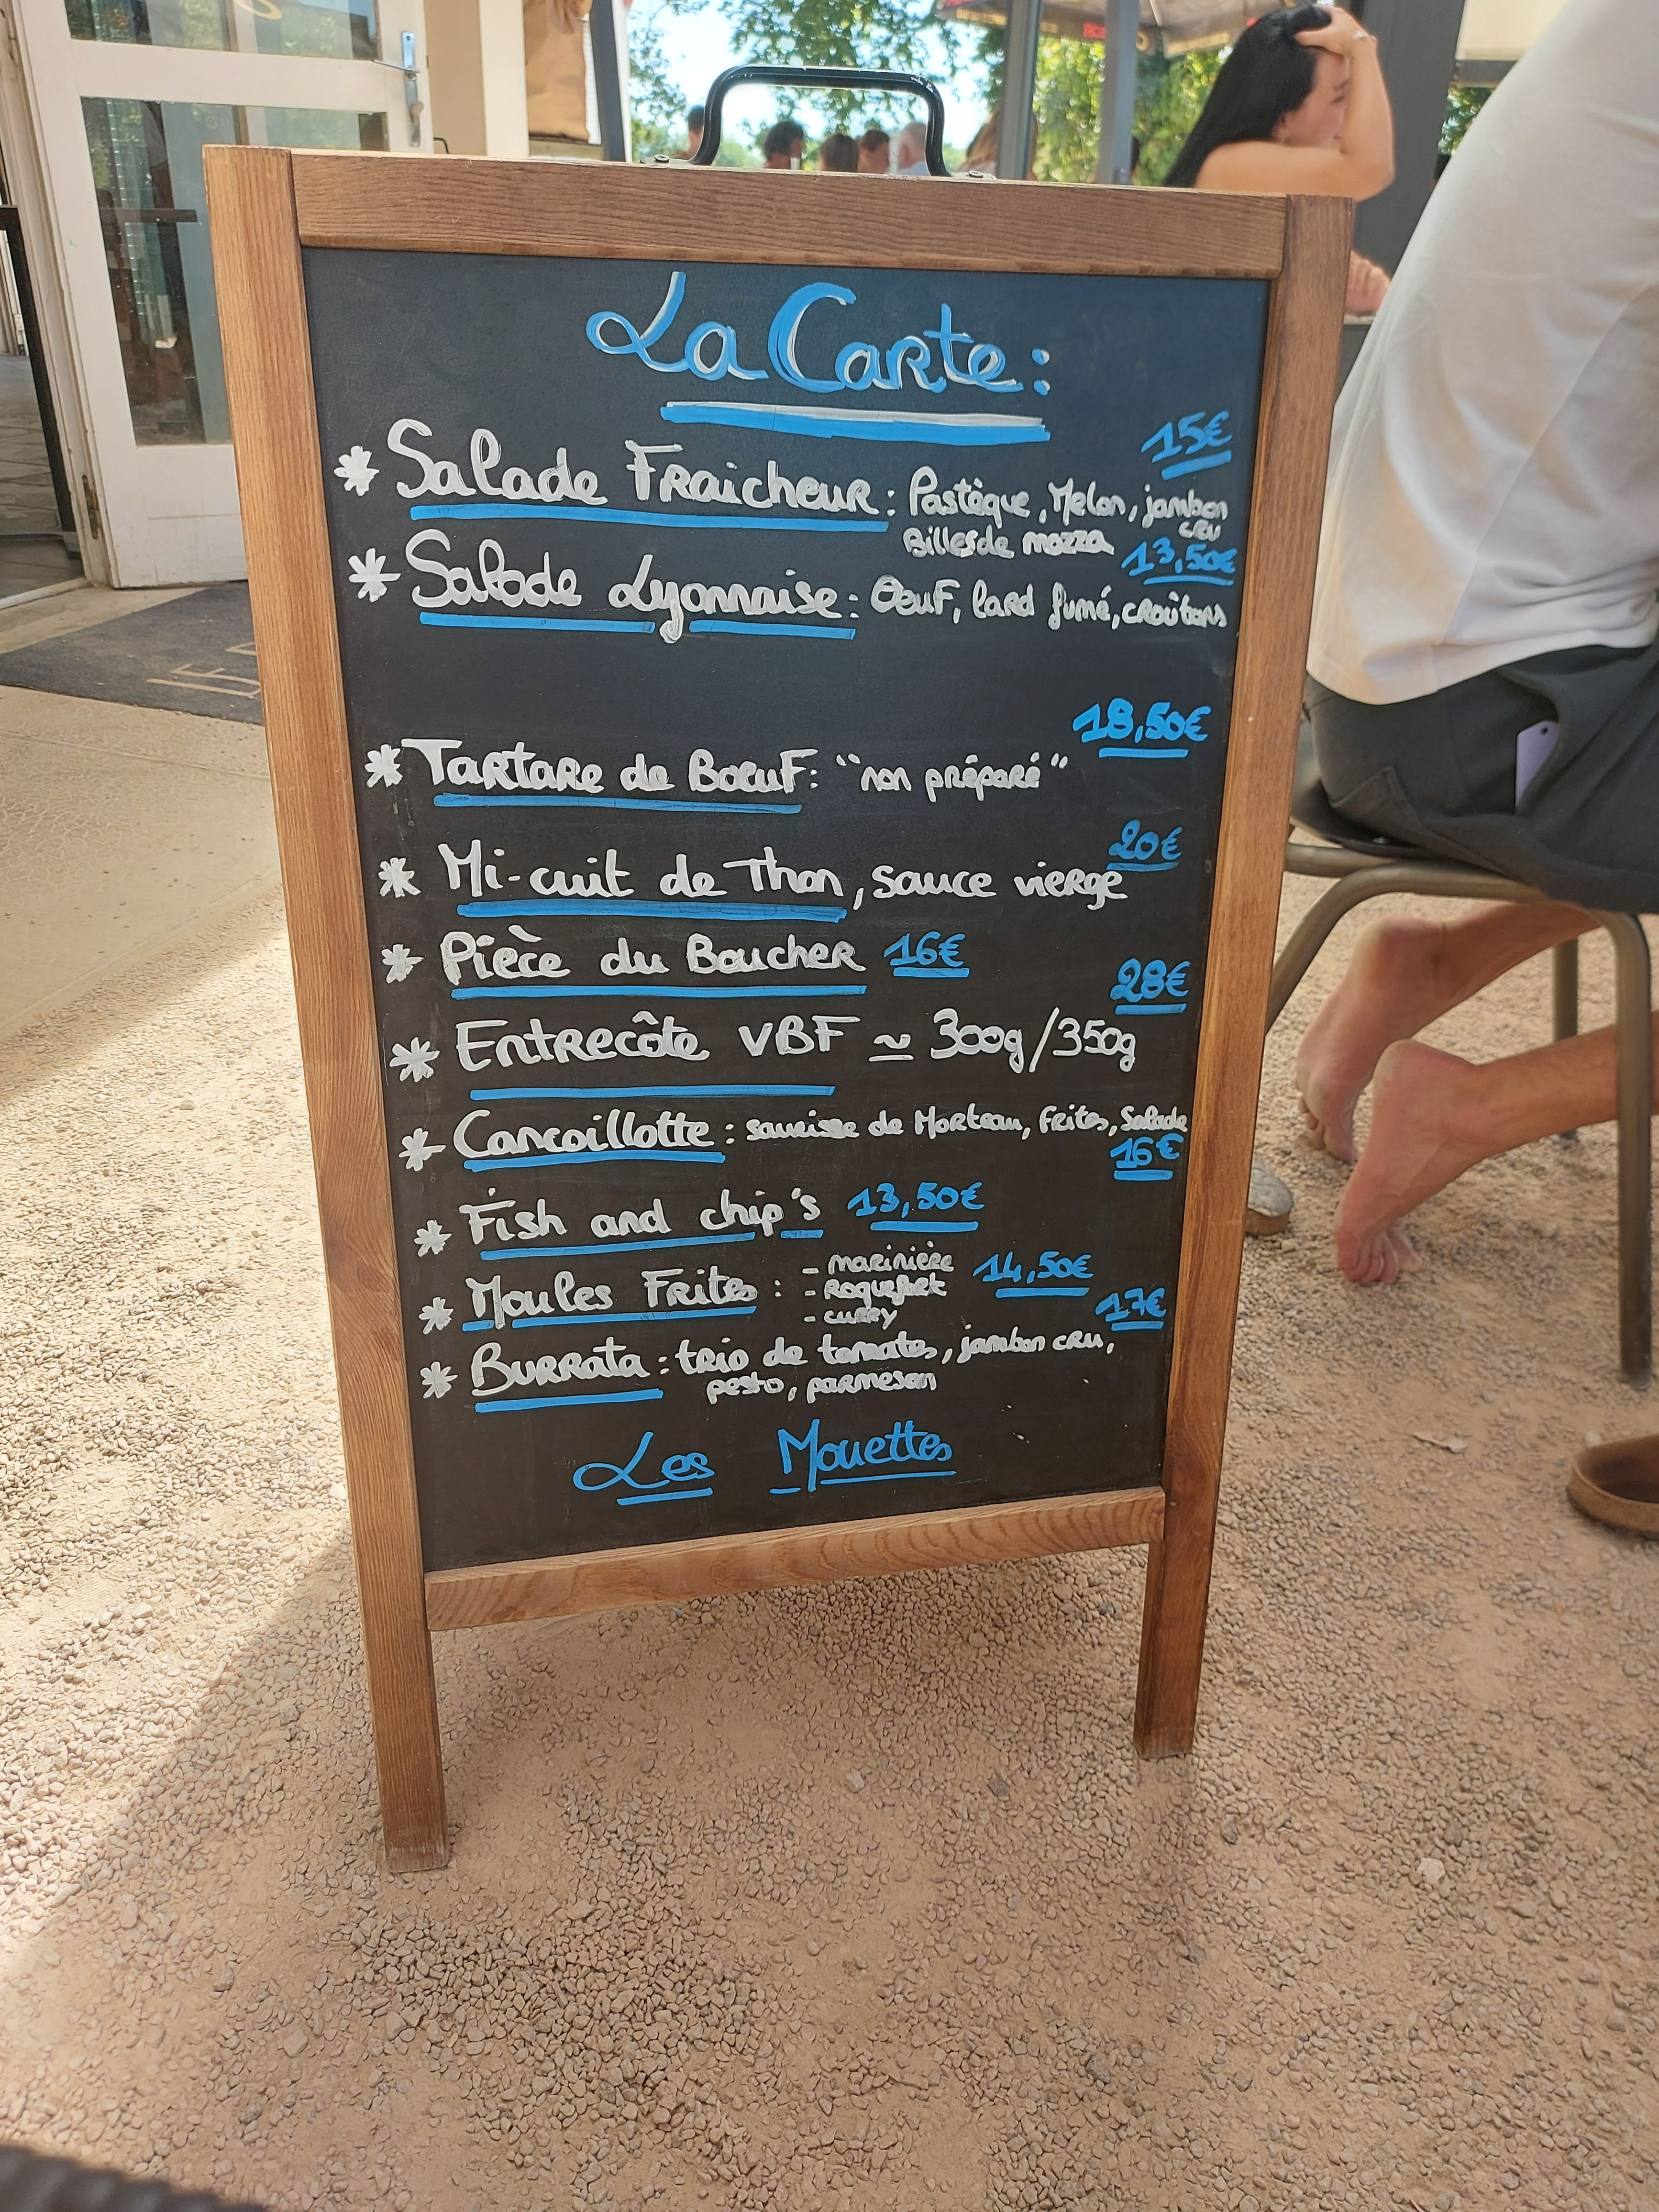 La Carte :
15€
* Salade Fraicheur : Pastèque, Melon, jambon cru
Billes de mozza
13,50€
* Salade Lyonnaise : Oeuf, lard fumé, croûtons
18,50€
* Tartare de Boeuf : "non préparé"
20€
* Mi-cuit de Thon, sauce vierge
* Pièce du Boucher 16€
28€
* Entrecôte VBF ≃ 300g/350g
* Cancoillotte : saucisse de Morteau, frites, Salade
16€
* Fish and chip's 13,50€
* Moules Frites : - marinière 14,50€
- Roquefort
- curry
17€
* Burrata : trio de tomates, jambon cru,
pesto, parmesan
Les Mouettes